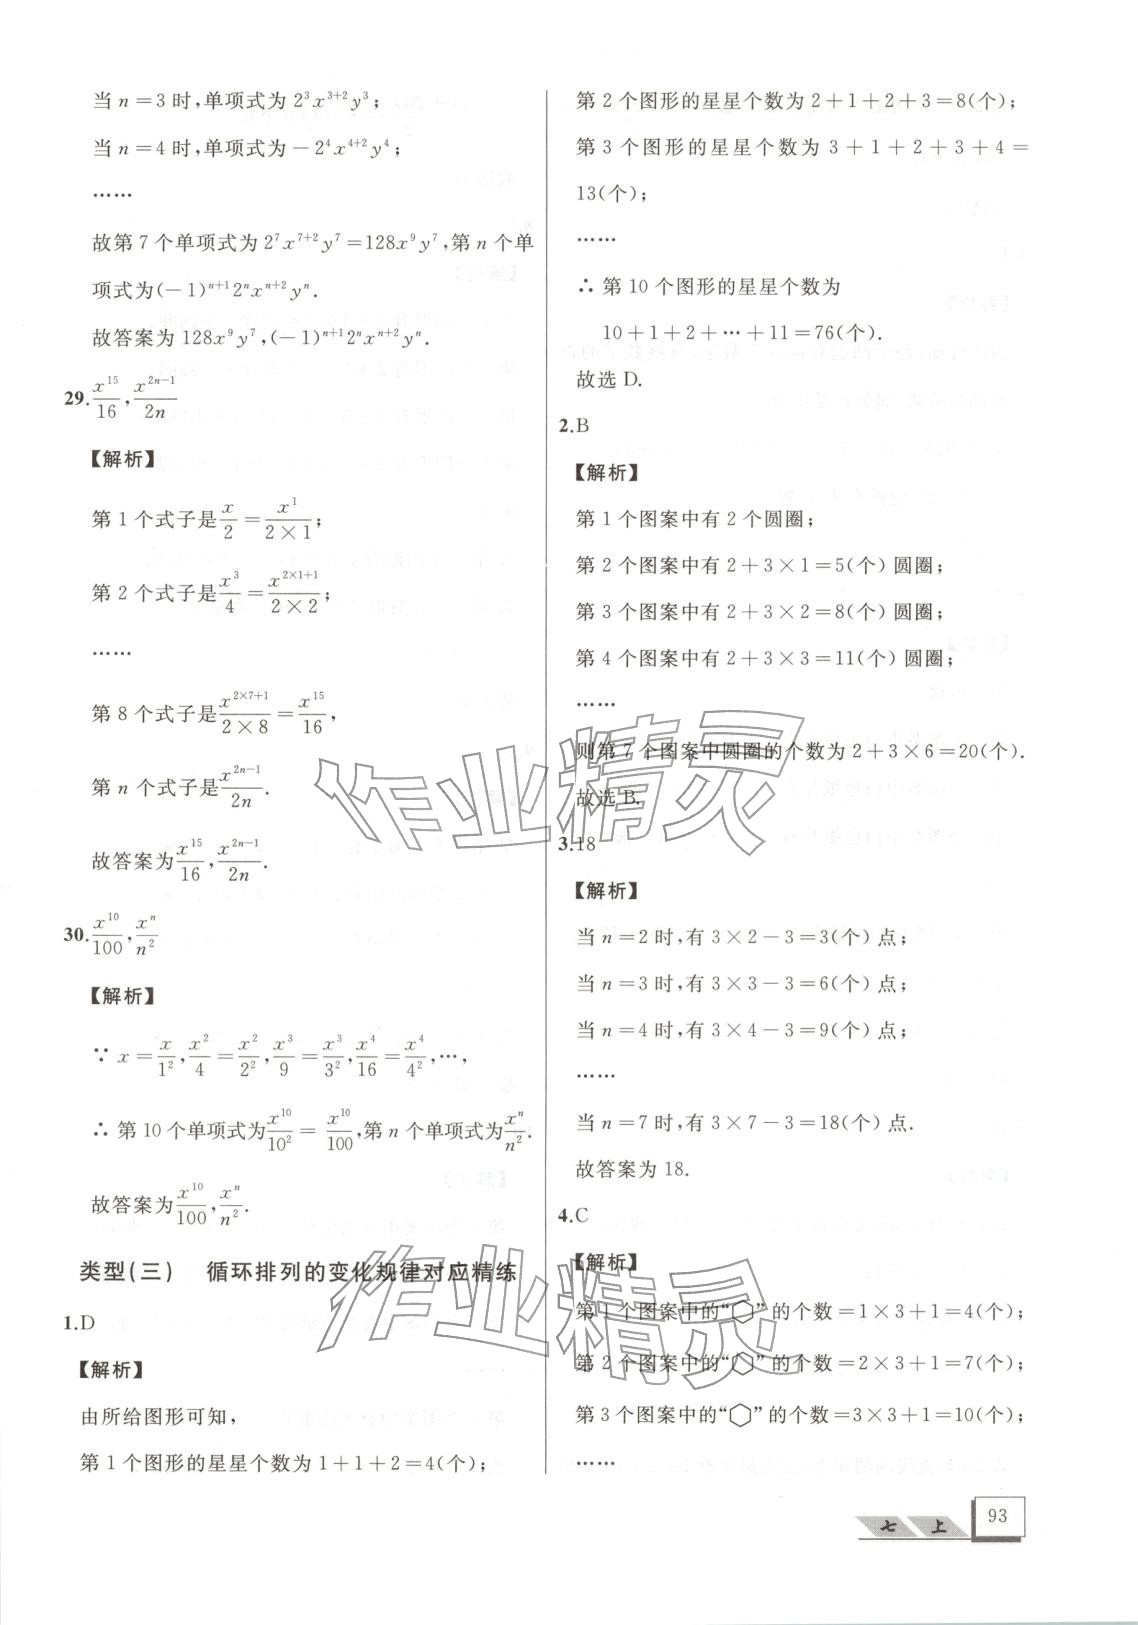 当 n＝3 时,单项式为 2³x³⁺²y³;
当 n＝4 时,单项式为－2⁴x⁴⁺²y⁴;
……
故第 7 个单项式为 2⁷x⁷⁺²y⁷＝128x⁹y⁷,第 n 个单
项式为(－1)ⁿ⁺¹2ⁿxⁿ⁺²yⁿ.
故答案为 128x⁹y⁷,(－1)ⁿ⁺¹2ⁿxⁿ⁺²yⁿ.
29. x¹⁵/16, x²ⁿ⁻¹/2n
【解析】
第 1 个式子是 x/2＝x¹/(2×1);
第 2 个式子是 x³/4＝x^(2×1+1)/(2×2);
……
第 8 个式子是 x^(2×7+1)/(2×8)＝x¹⁵/16,
第 n 个式子是 x²ⁿ⁻¹/2n.
故答案为 x¹⁵/16, x²ⁿ⁻¹/2n.
30. x¹⁰/100, xⁿ/n²
【解析】
∵ x＝x/1², x²/4＝x²/2², x³/9＝x³/3², x⁴/16＝x⁴/4²,…,
∴ 第 10 个单项式为 x¹⁰/10²＝x¹⁰/100,第 n 个单项式为 xⁿ/n².
故答案为 x¹⁰/100, xⁿ/n².
类型(三) 循环排列的变化规律对应精练
1.D
【解析】
由所给图形可知,
第 1 个图形的星星个数为 1＋1＋2＝4(个);
第 2 个图形的星星个数为 2＋1＋2＋3＝8(个);
第 3 个图形的星星个数为 3＋1＋2＋3＋4＝
13(个);
……
∴ 第 10 个图形的星星个数为
10＋1＋2＋…＋11＝76(个).
故选 D.
2.B
【解析】
第 1 个图案中有 2 个圆圈;
第 2 个图案中有 2＋3×1＝5(个)圆圈;
第 3 个图案中有 2＋3×2＝8(个)圆圈;
第 4 个图案中有 2＋3×3＝11(个)圆圈;
……
则第 7 个图案中圆圈的个数为 2＋3×6＝20(个).
故选 B.
3.18
【解析】
当 n＝2 时,有 3×2－3＝3(个)点;
当 n＝3 时,有 3×3－3＝6(个)点;
当 n＝4 时,有 3×4－3＝9(个)点;
……
当 n＝7 时,有 3×7－3＝18(个)点.
故答案为 18.
4.C
【解析】
第 1 个图案中的“⬡”的个数＝1×3＋1＝4(个);
第 2 个图案中的“⬡”的个数＝2×3＋1＝7(个);
第 3 个图案中的“⬡”的个数＝3×3＋1＝10(个);
……
作业精灵
作业精灵
七 上 93